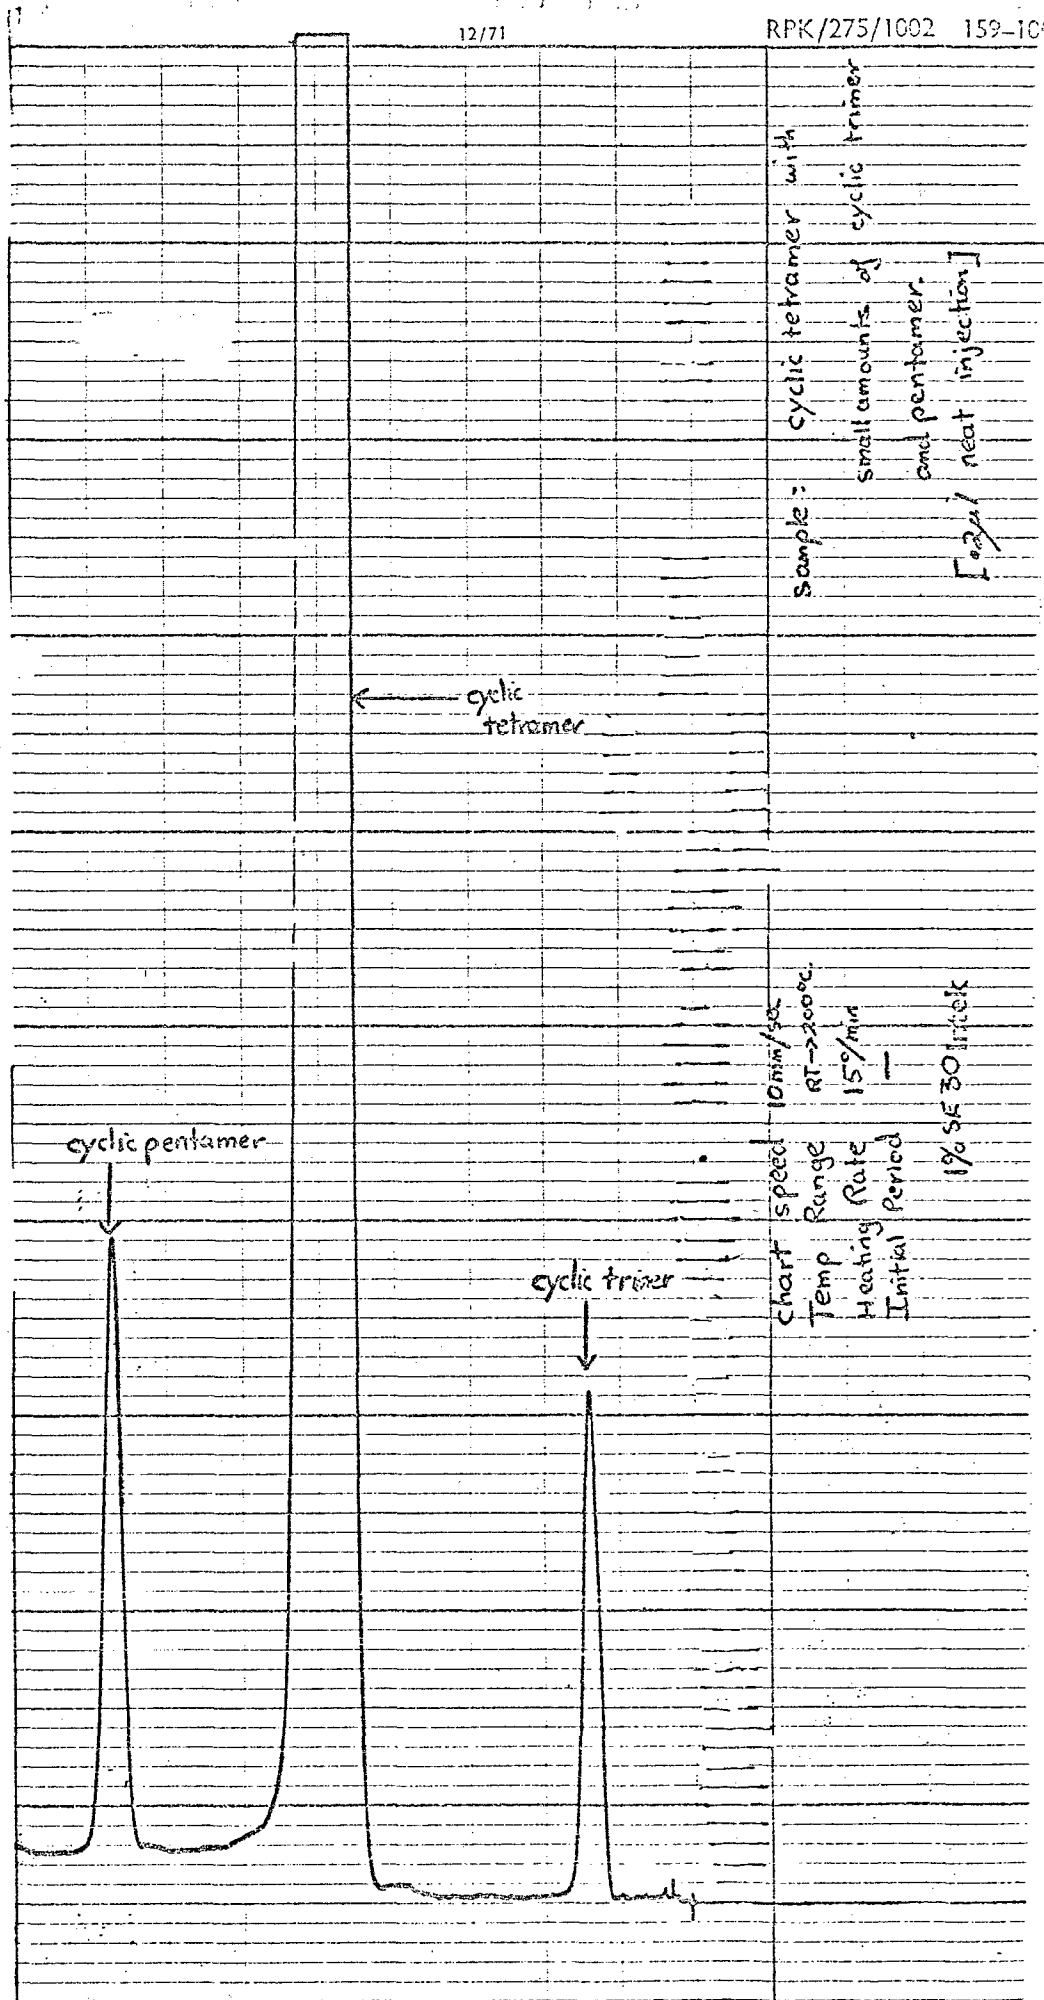 12/71
RPK/275/1002 159-10
sample: cyclic tetramer with
small amounts of cyclic trimer
and pentamer.
neat injection]
cyclic
tetramer
cyclic pentamer
cyclic trimer
Chart speed 10mm/sec
Temp Range RT→200°C.
Heating Rate 15°/min
Initial Period —
1% SE 30